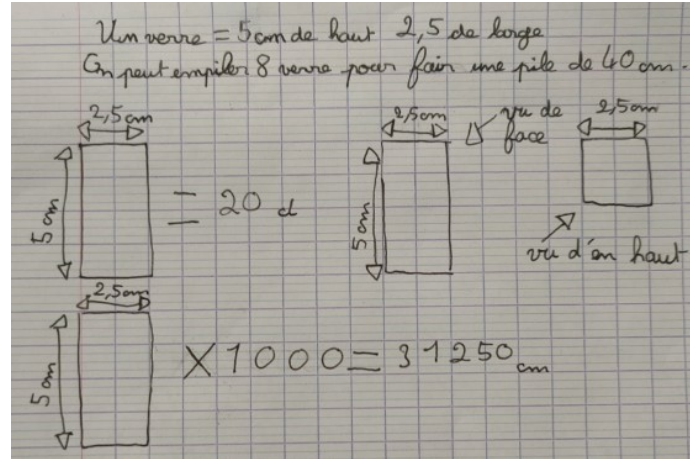 Un verre = 5cm de haut 2,5 de large
On peut empiler 8 verre pour fair une pile de 40 cm.
2,5cm
5cm
= 20 d
2,5cm
5cm
vu de face
2,5cm
vu d'en haut
2,5cm
5cm
X1000=31250cm